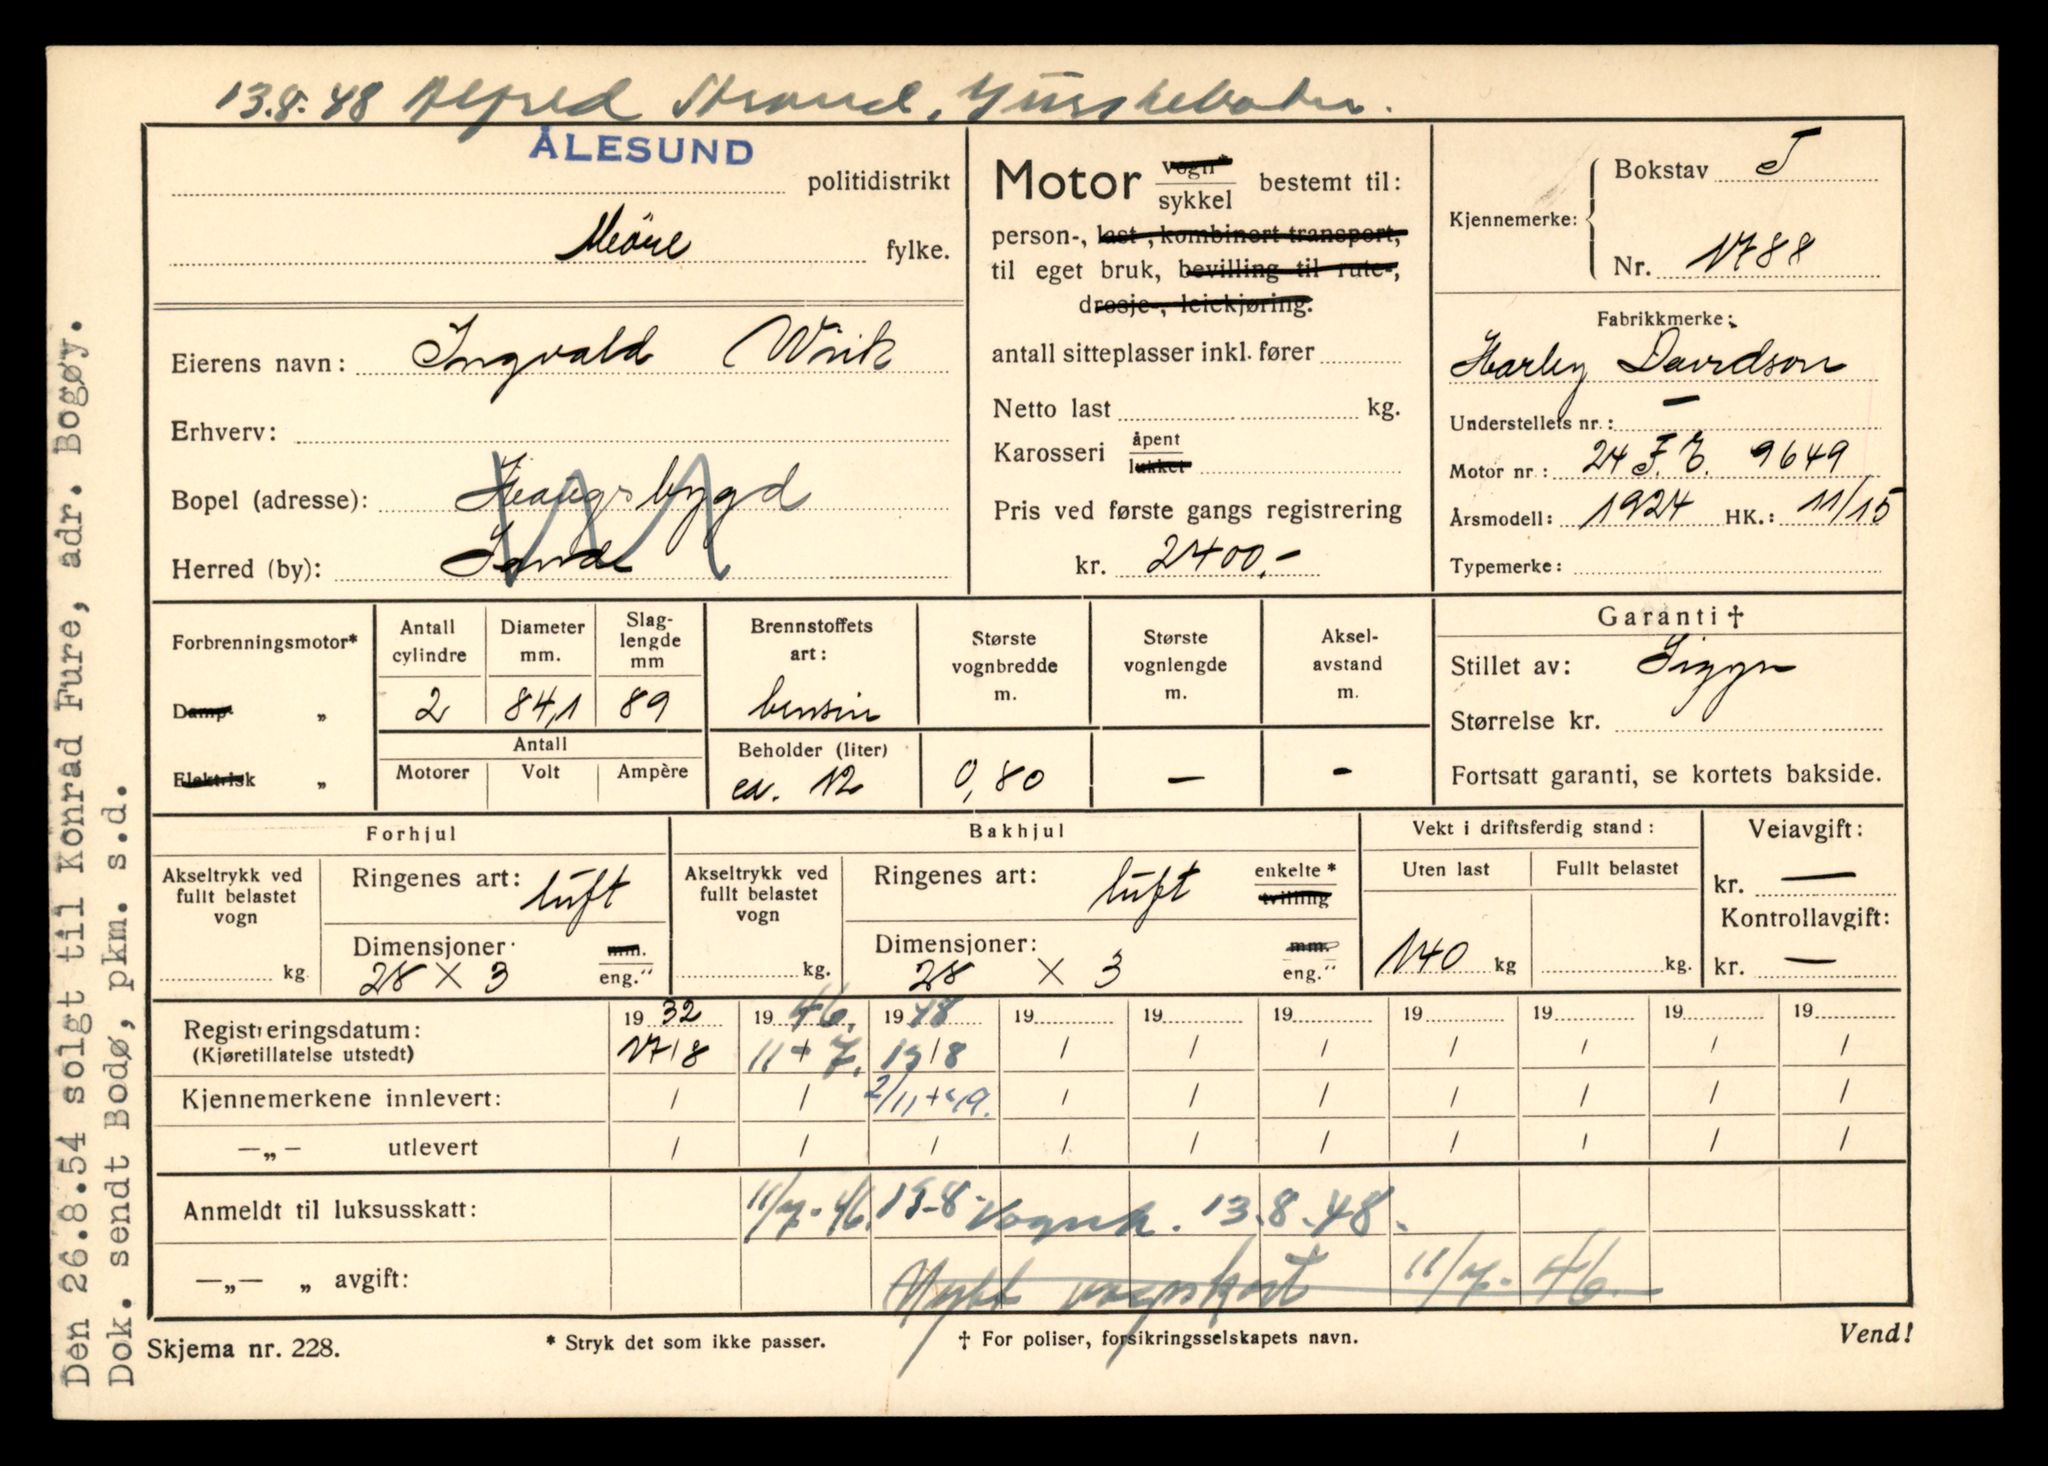 13.8.48 Alfred Strand, Gurskebotn.
ÅLESUND
politidistrikt
Möre fylke.
Eierens navn: Ingvald Wiik
Erhverv:
Bopel (adresse): Haugsbygd
Herred (by): Sande
Motor vogn* sykkel bestemt til:
person-, last-, kombinert transport,
til eget bruk, bevilling til rute-,
drosje-, leiekjøring.
antall sitteplasser inkl. fører
Netto last kg.
Karosseri åpent lukket
Pris ved første gangs registrering
kr. 2400,-
Kjennemerke: Bokstav T
Nr. 1788
Fabrikkmerke:
Harley Davidson
Understellets nr.: —
Motor nr.: 24 F.E. 9649
Årsmodell: 1924 HK.: 11/15
Typemerke:
Forbrenningsmotor*
Damp „
Elektrisk „
Antall cylindre 2
Diameter mm. 84,1
Slaglengde mm 89
Antall
Motorer Volt Ampère
Brennstoffets art: bensin
Beholder (liter) ca. 12
Største vognbredde m. 0,80
Største vognlengde m. —
Akselavstand m. —
Garanti †
Stillet av: Sigyn
Størrelse kr.
Fortsatt garanti, se kortets bakside.
Forhjul
Akseltrykk ved fullt belastet vogn kg.
Ringenes art: luft
Dimensjoner: 28 x 3 mm. eng."
Bakhjul
Akseltrykk ved fullt belastet vogn kg.
Ringenes art: luft enkelte* tvilling
Dimensjoner: 28 x 3 mm. eng."
Vekt i driftsferdig stand:
Uten last 140 kg
Fullt belastet kg.
Veiavgift:
kr. —
Kontrollavgift:
kr. —
Registreringsdatum: 1932 1946. 1948 19 19 19 19 19 19 19
(Kjøretillatelse utstedt) 17/8 11+7. 13/8 / / / / / / /
Kjennemerkene innlevert: / / 2/11+49. / / / / / / /
—„— utlevert / / / / / / / / / /
Anmeldt til luksusskatt: 11/7-46. 13-8- Vognk. 13.8.48.
—„— „ avgift: Nytt vognkort 11/7-46.
Skjema nr. 228.
* Stryk det som ikke passer.
† For poliser, forsikringsselskapets navn.
Vend!
Den 26.8.54 solgt til Konrad Fure, adr. Bogøy.
Dok. sendt Bodø, pkm. s.d.